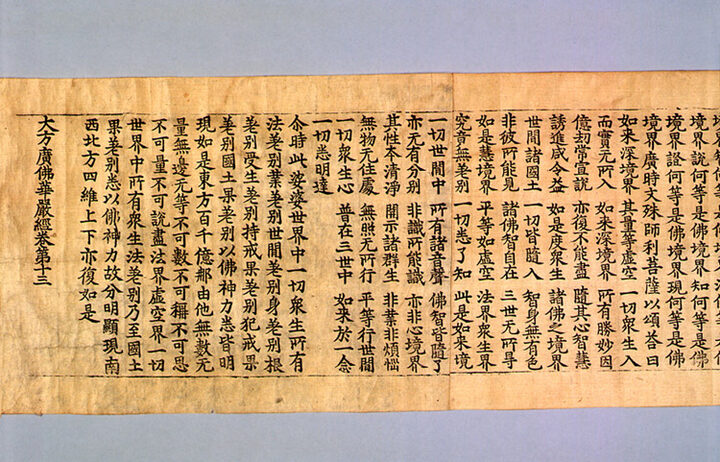 境界說何等是佛境界知何等是佛
境界證何等是佛境界現何等是佛
境界廣時文殊師利菩薩以頌荅曰
如來深境界 其量等虛空 一切衆生入
而實无所入 如來深境界 所有勝妙因
億劫常宣說 亦復不能盡 隨其心智慧
誘進咸令益 如是度衆生 諸佛之境界
世間諸國土 一切皆隨入 智身無有色
非彼所能見 諸佛智自在 三世无所㝵
如是慧境界 平等如虛空 法界衆生界
究竟無差別 一切悉了知 此是如來境
一切世間中 所有諸音聲 佛智皆隨了
亦无有分別 非識所能識 亦非心境界
其性本清淨 開示諸群生 非業非煩惱
無物无住處 無照无所行 平等行世間
一切衆生心 普在三世中 如來於一念
一切悉明達
尒時此娑婆世界中一切衆生所有
法差別業差別世間差別身差別根
差別受生差別持戒果差別犯戒果
差別國土果差別以佛神力悉皆明
現如是東方百千億那由他無數无
量無邊无等不可數不可稱不可思
不可量不可說盡法界虛空界一切
世界中所有衆生法差別乃至國土
果差別悉以佛神力故分明顯現南
西北方四維上下亦復如是
大方廣佛華嚴經卷第十三